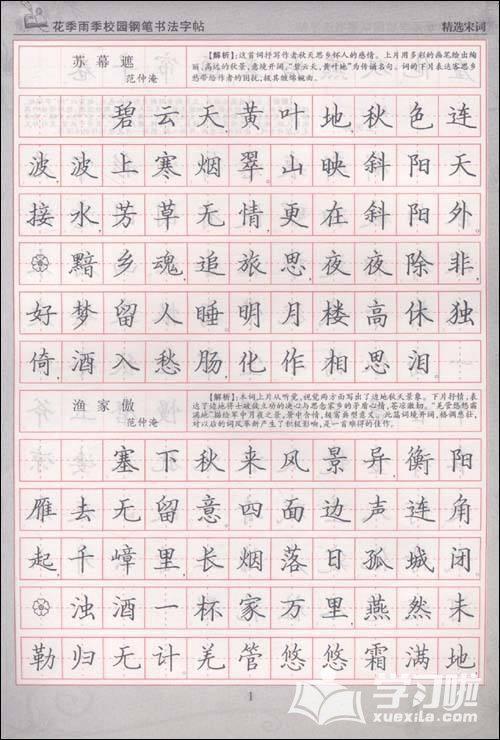 花季雨季校园钢笔书法字帖 精选宋词
苏幕遮
范仲淹
【解析】：这首词抒写作者秋天思乡怀人的感情。上片用多彩的画笔绘出绚
丽、高远的秋景，意境开阔，“碧云天，黄叶地”为传诵名句。词的下片表达客思乡
愁带给作者的困扰，极其缠绵婉曲。
碧云天黄叶地秋色连
波波上寒烟翠山映斜阳天
接水芳草无情更在斜阳外
黯乡魂追旅思夜夜除非
好梦留人睡明月楼高休独
倚酒入愁肠化作相思泪
渔家傲
范仲淹
【解析】：本词上片从听觉，视觉两方面写出了边地秋天景象。下片抒情，
表达了边地将士破敌立功的决心与思念家乡的矛盾心情，苍凉激切。“羌管悠悠霜
满地”描绘军中月夜之景，景中含情，极富典型意义。此篇词境开阔，格调悲壮，
对以后的词风革新产生了积极影响，是一首难得的佳作。
塞下秋来风景异衡阳
雁去无留意四面边声连角
起千嶂里长烟落日孤城闭
浊酒一杯家万里燕然未
勒归无计羌管悠悠霜满地
1
学习啦
xuexila.com